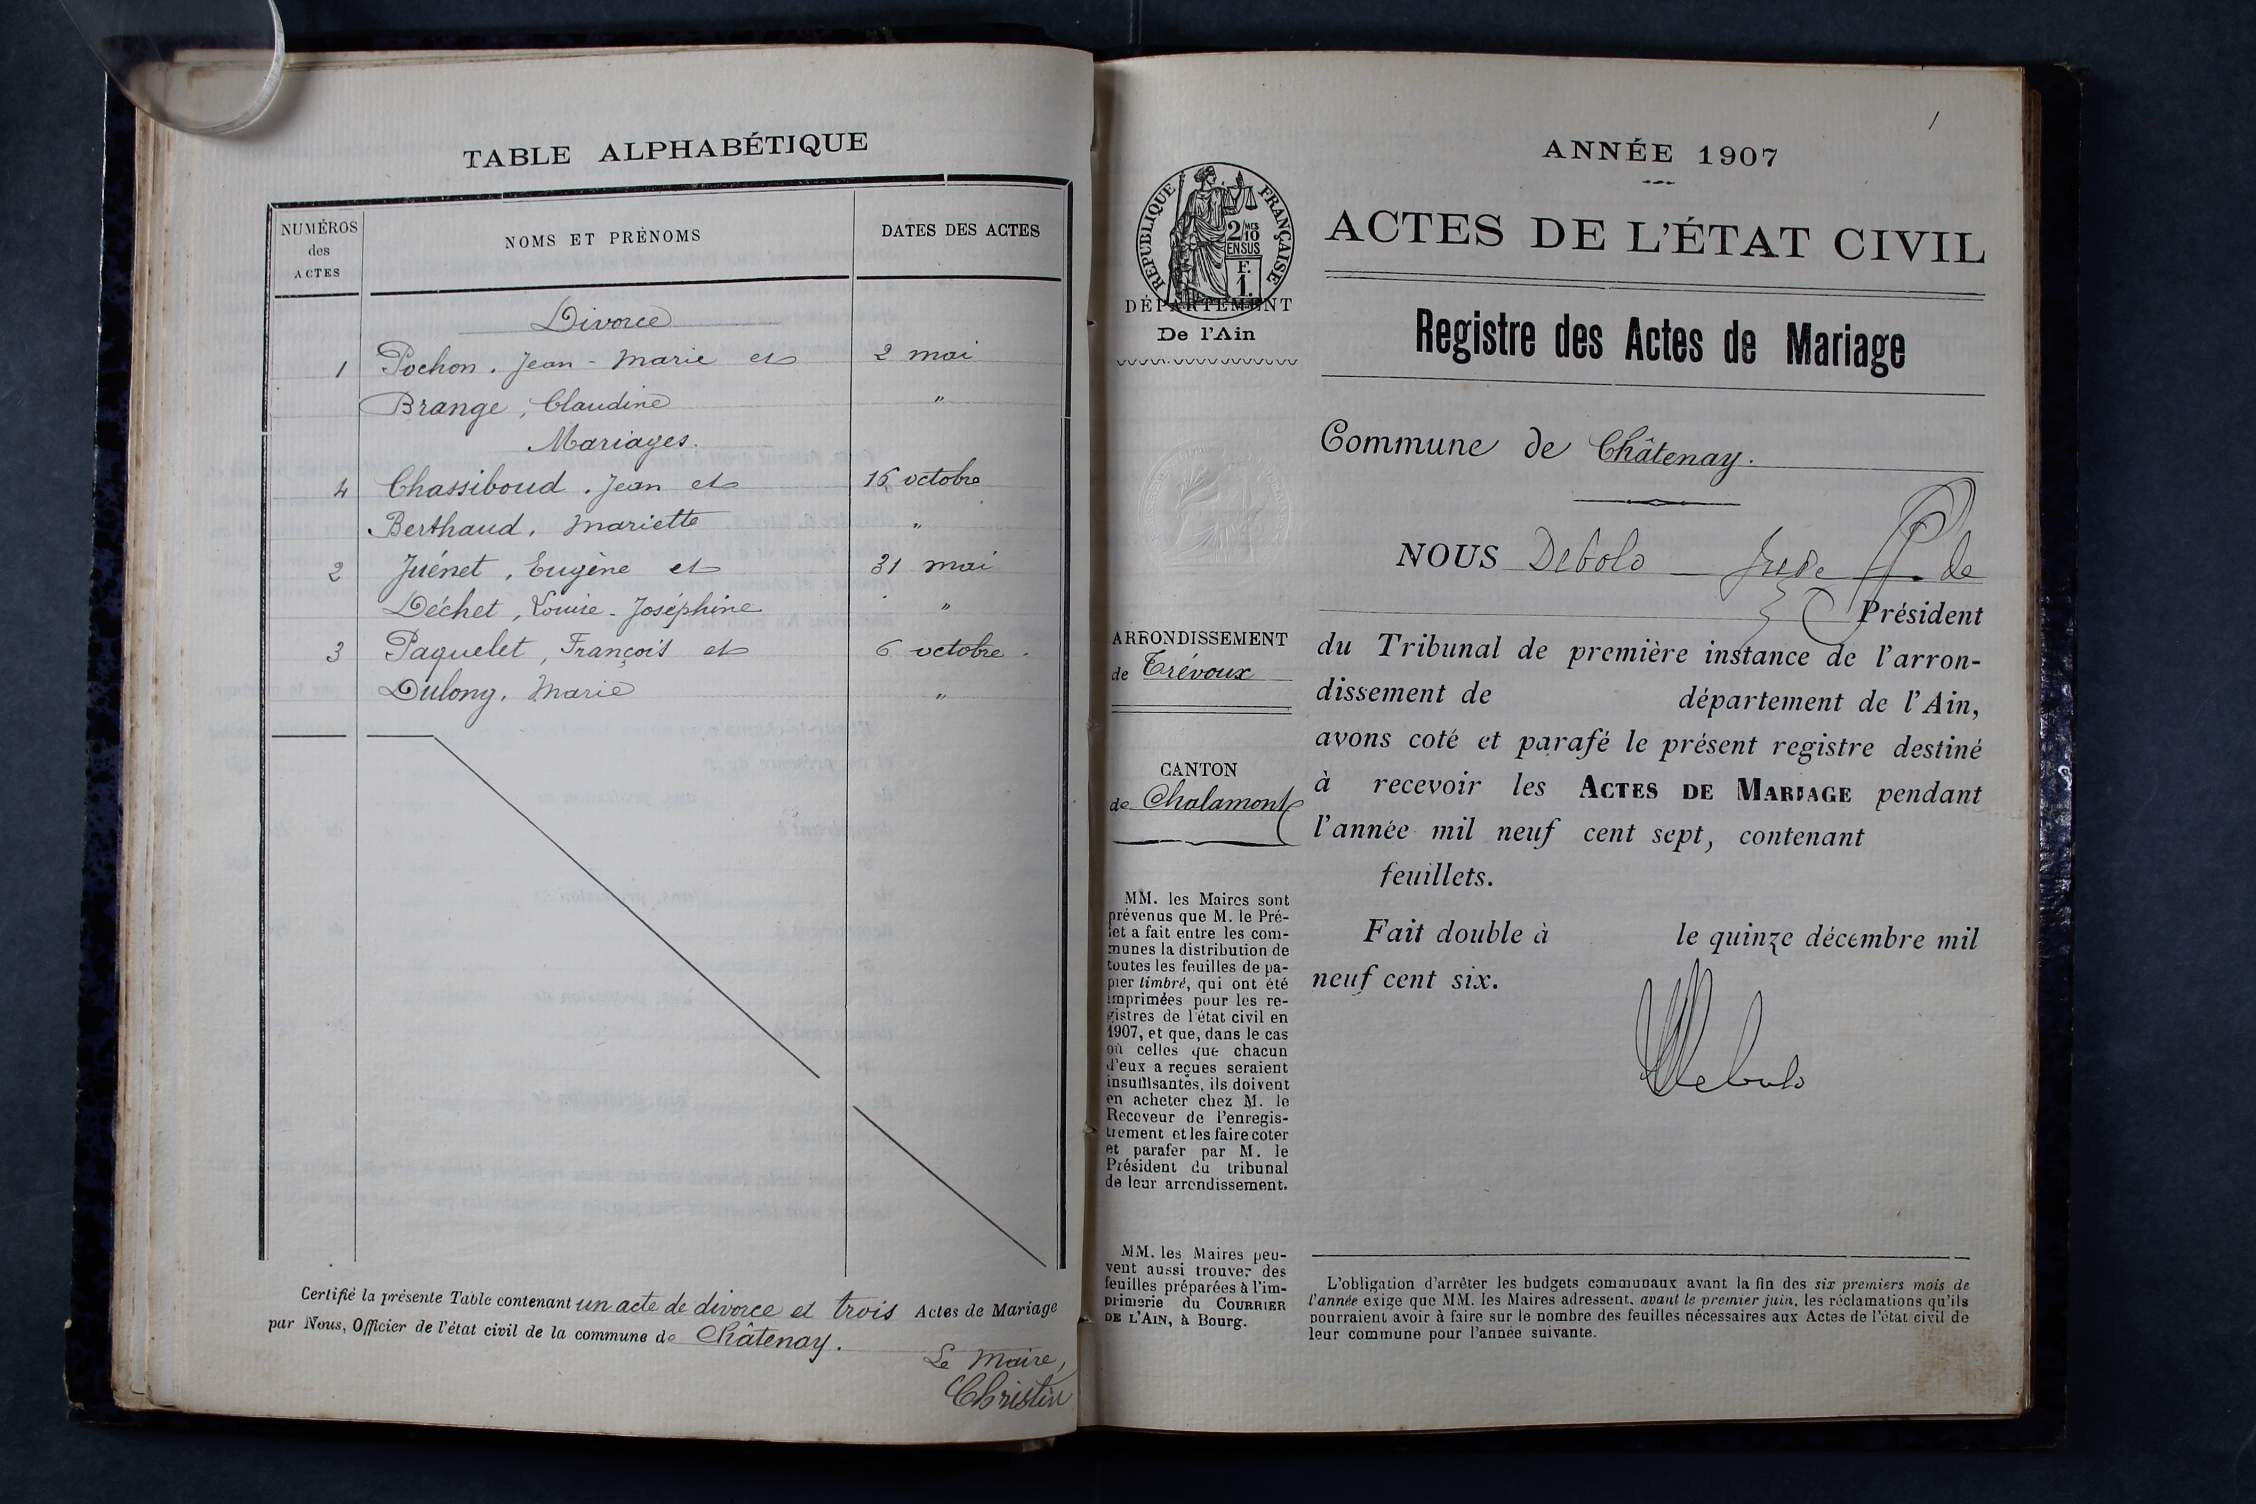 TABLE ALPHABÉTIQUE
NUMÉROS des ACTES
NOMS ET PRÉNOMS
DATES DES ACTES
Divorce
1 Pochon, Jean-Marie et 2 mai
Brange, Claudine "
Mariages.
4 Chassiboud, Jean et 16 octobre
Berthaud, Mariette "
2 Juénet, Eugène et 31 mai
Déchet, Louise-Joséphine "
3 Paquelet, François et 6 octobre
Dulong, Marie "
Certifié la présente Table contenant un acte de divorce et trois Actes de Mariage
par Nous, Officier de l'état civil de la commune de Châtenay.
Le Maire,
Christin
1
ANNÉE 1907
RÉPUBLIQUE FRANÇAISE
2/10 MES
EN SUS
F.
1.
DÉPARTEMENT
De l'Ain
ARRONDISSEMENT
de Trévoux
CANTON
de Chalamont
MM. les Maires sont
prévenus que M. le Pré-
fet a fait entre les com-
munes la distribution de
toutes les feuilles de pa-
pier timbré, qui ont été
imprimées pour les re-
gistres de l'état civil en
1907, et que, dans le cas
où celles que chacun
d'eux a reçues seraient
insuffisantes, ils doivent
en acheter chez M. le
Receveur de l'enregis-
trement et les faire coter
et parafer par M. le
Président du tribunal
de leur arrondissement.
MM. les Maires peu-
vent aussi trouver des
feuilles préparées à l'im-
primerie du COURRIER
DE L'AIN, à Bourg.
ACTES DE L'ÉTAT CIVIL
Registre des Actes de Mariage
Commune de Châtenay.
NOUS Debolo Juge de
Président
du Tribunal de première instance de l'arron-
dissement de département de l'Ain,
avons coté et parafé le présent registre destiné
à recevoir les ACTES DE MARIAGE pendant
l'année mil neuf cent sept, contenant
feuillets.
Fait double à le quinze décembre mil
neuf cent six.
Debolo
L'obligation d'arrêter les budgets communaux avant la fin des six premiers mois de
l'année exige que MM. les Maires adressent, avant le premier juin, les réclamations qu'ils
pourraient avoir à faire sur le nombre des feuilles nécessaires aux Actes de l'état civil de
leur commune pour l'année suivante.